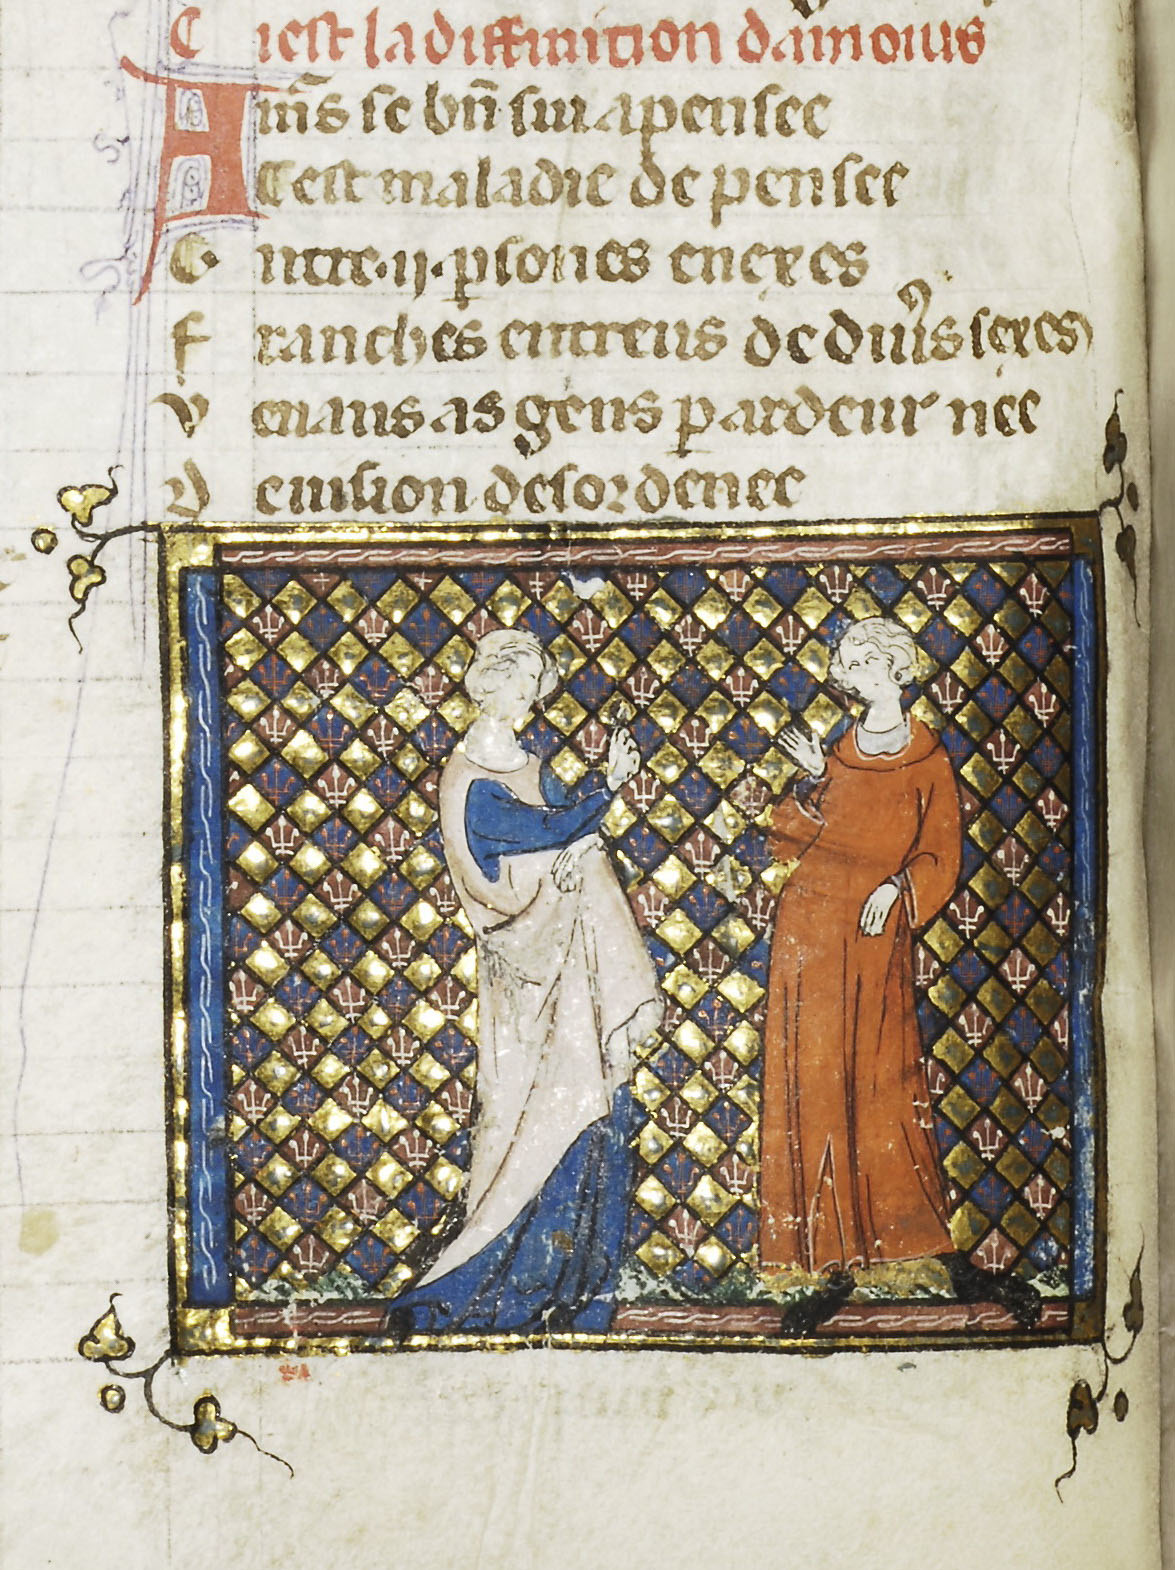 C iest la diffinition damours
Am̄s se bn̄ sui apensee
Cest maladie de pensee
Entre .ij. psones enexes
franches entreus de diu's sexes
venans as gens par deur nee
d euision desordenee